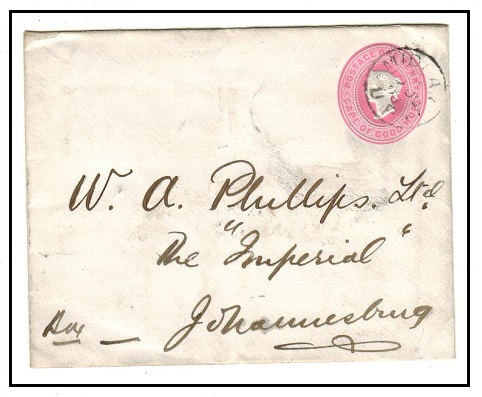 POSTAGE ONE PENNY
CAPE OF GOOD HOPE
W. A. Phillips. Ltd
The "Imperial"
Johannesburg
Box